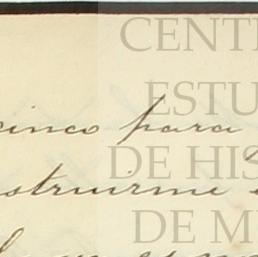 CENT
ESTU
cinco para
DE HIS
struirme
DE M